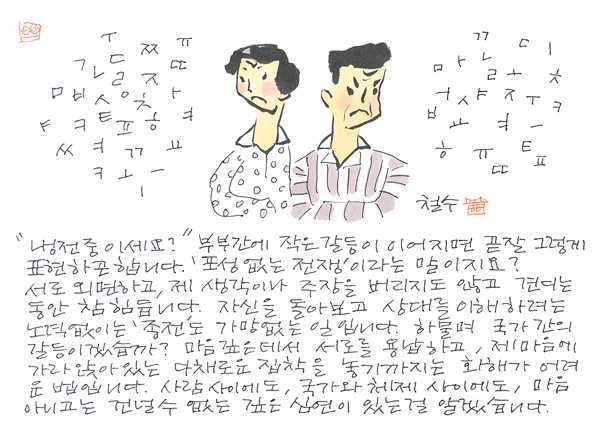 철수
"냉전중이세요?" 부부간에 작은갈등이 이어지면 곧잘 그렇게
표현하곤합니다. '포성없는 전쟁'이라는 말이지요?
서로 외면하고, 제 생각이나 주장을 버리지도 않고 견디는
동안 참 힘듭니다. 자신을 돌아보고 상대를 이해하려는
노력없이는 '종전'도 가망없는 일입니다. 하물며 국가간의
갈등이겠습니까? 마음깊은데서 서로를 용납하고, 제마음에
가라앉아있는 다채로운 집착을 놓기까지는 화해가 어려
운 법입니다. 사람사이에도, 국가와 체제 사이에도, 마음
아니고는 건널수 없는 깊은 심연이 있는걸 알겠습니다.